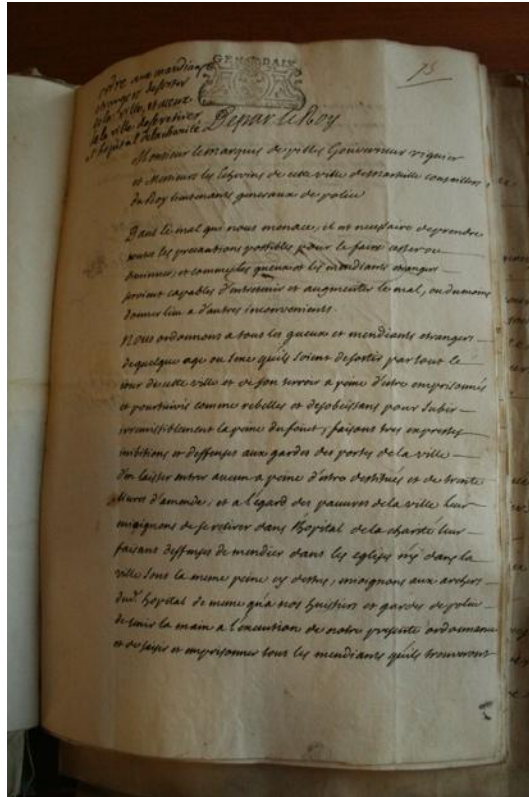 ordre aux mendiants
etrangers de sortir
de la ville, et a ceux
de la ville de se retirer
a l'hopital de la charité
GEN DAIX
75
De par le Roy
Monsieur le marquis de pilles Gouverneur viguier
et Messieurs les Echevins de cette ville de Marseille conseillers
du Roy lieutenants generaux de police
Dans le mal qui nous menace, il est necessaire de prendre
toutes les precautions possibles pour le faire cesser ou
diminuer, et comme les gueux et les mendiants etrangers
seroient capables d'entretenir et augmenter le mal, ou du moins
donner lieu a d'autres inconvenients.
Nous ordonnons a tous les gueux et mendiants etrangers
de quelque age ou sexe qu'ils soient de sortir par tout le
jour de cette ville et de son terroir a peine d'etre emprisonnés
et poursuivis comme rebelles et desobeissans pour subir
irremissiblement la peine du fouet, faisons tres expresses
inibitions et deffenses aux gardes des portes de la ville
d'en laisser entrer aucun a peine d'etre destitués et de trente
livres d'amende; et a l'egard des pauvres de la ville leur
enjoignons de se retirer dans l'hopital de la charité leur
faisans deffenses de mendier dans les eglises ny dans la
ville sous la meme peine cy dessus, enjoignons aux archers
dud. hopital de meme qu'a nos huissiers et gardes de police
de tenir la main a l'execution de notre presente ordonnance
et de saisir et emprisonner tous les mendiants qu'ils trouveront